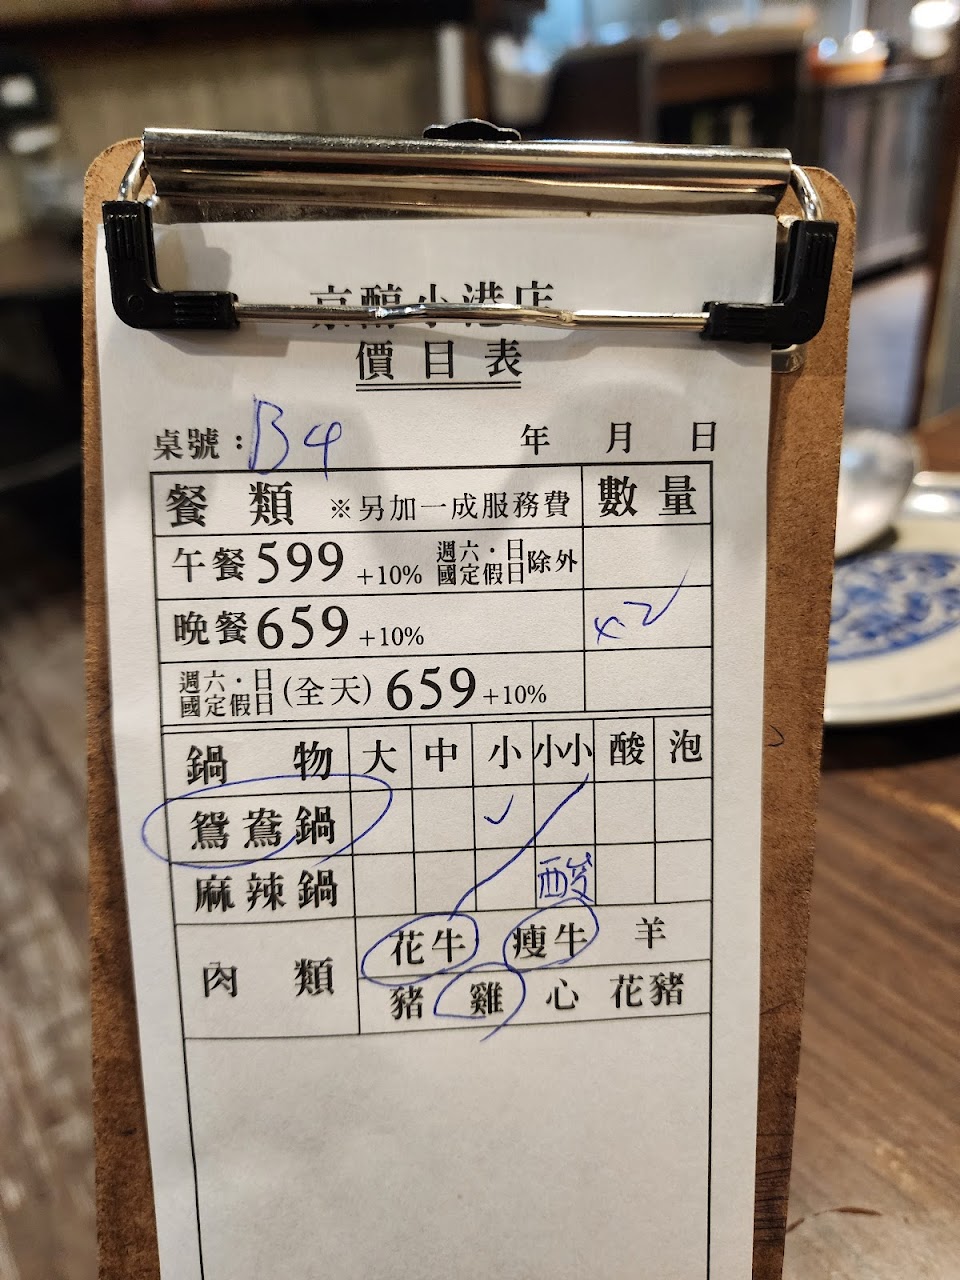 京醇小港店
價目表
桌號：B4 年 月 日
餐類 ※另加一成服務費 數量
午餐 599 +10% 週六・日 國定假日 除外
晚餐 659 +10% x2
週六・日 國定假日 (全天) 659 +10%
鍋物 大 中 小 小小 酸 泡
鴛鴦鍋 ✓
麻辣鍋 酸
肉類 花牛 瘦牛 羊
豬 雞 心 花豬